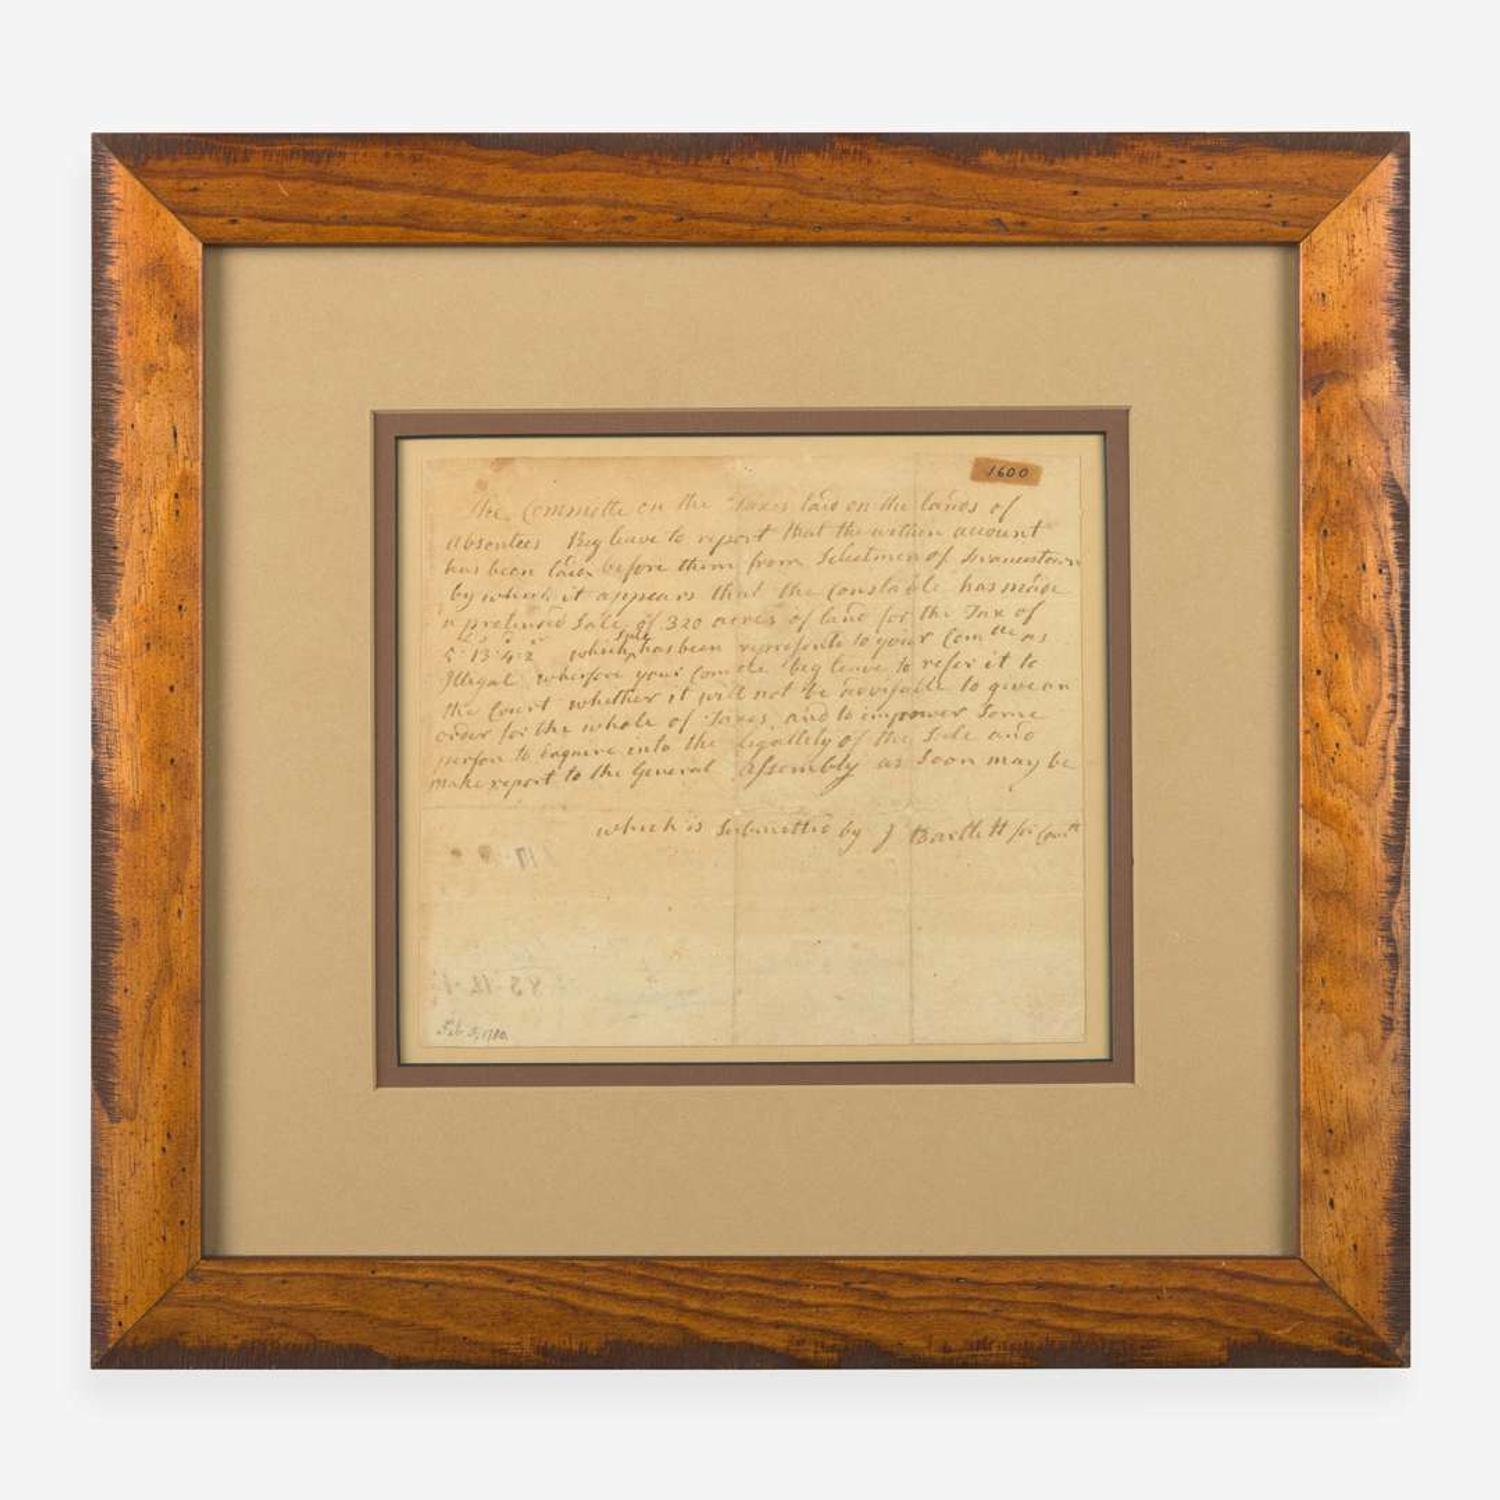 1600
The Committe on the Taxes laid on the lands of
absentees Beg leave to report that the within account
has been laid before them from Selectmen of Francistown
by which it appears that the Constable has made
a pretended Sale of 320 acres of land for the Tax of
5·13·4·2 which Sale has been represente to your Comtte as
Illegal wherefore your Comtte beg leave to refer it to
the Court whether it will not be advisable to give an
order for the whole of Taxes, and to impower Some
person to Enquire into the legallity of the Sale and
make report to the General Assembly as Soon may be
which is Submitted by J Bartlett for Comtt
Feb 5, 1780.